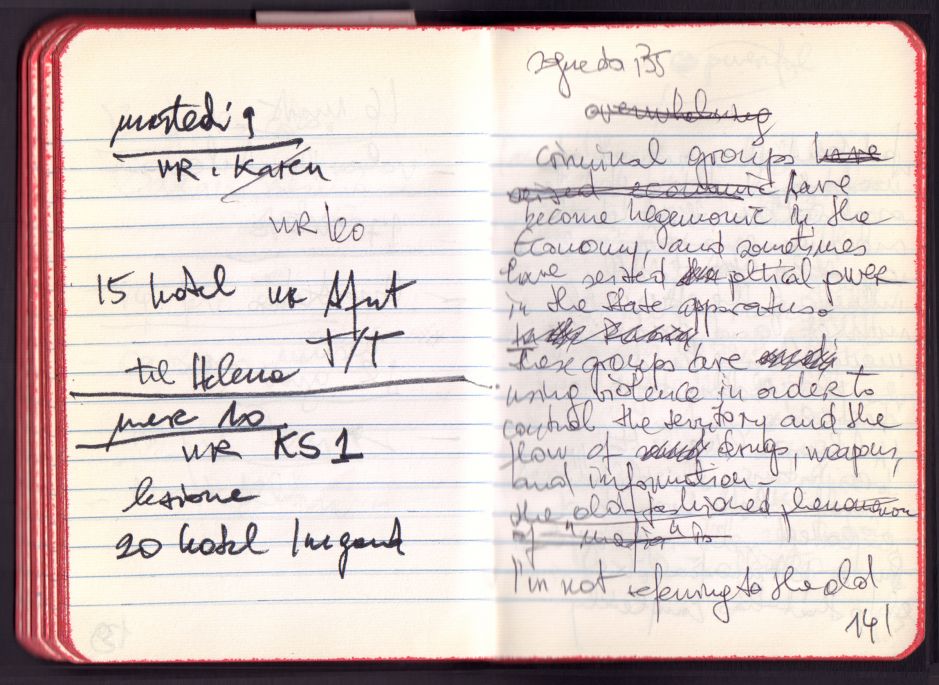 martedi 9
WR. Karen
WR leo
15 hotel WR
J/T
tel Helena
mer 10
WR KS1
lezione
20 hotel
segue da 135
overwhelming
criminal groups have
seized economic have
become hegemonic in the
Economy, and sometimes
have seized political power
in the state apparatus.
these groups are
using violence in order to
control the territory and the
flow of drugs, weapons,
and information -
the old-fashioned phenomenon
of "mafia"
I'm not referring to the old
141